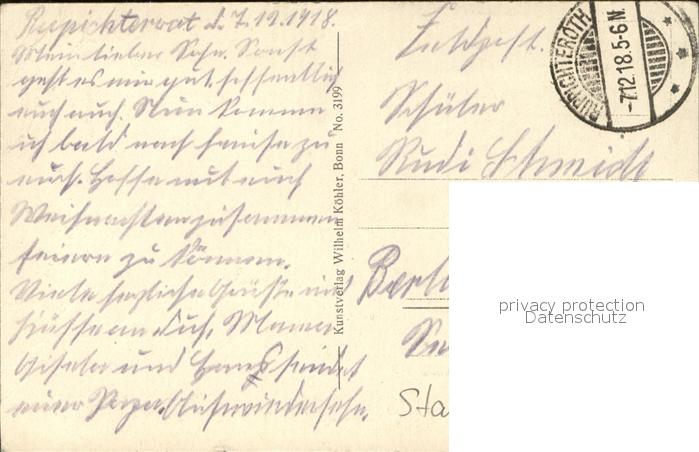 Ruppichterrot d. 7.12.1918.
Mein lieber Sohn. Sonst
geht es mir gut, hoffentlich
euch auch. Nun komme
ich bald nach Hause zu
euch. Hoffe mit euch
Weihnachten zusammen
feiern zu können.
Viele herzliche Grüße und
Küsse an Dich, Mama
Gisela und Hans sendet
euer Papa. Aufwiedersehn.
Kunstverlag Wilhelm Köhler, Bonn No. 3199
Feldpost.
Schüler
Rudi Schmidt
Berl
Sta
RUPPICHTEROTH
-7.12.18.5-6N.
privacy protection
Datenschutz